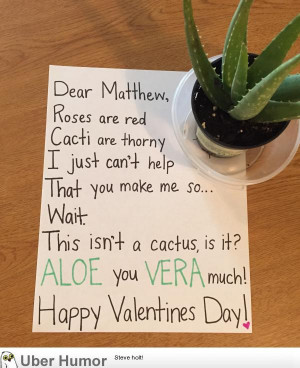 Dear Matthew,
Roses are red
Cacti are thorny
I just can't help
That you make me so...
Wait.
This isn't a cactus, is it?
ALOE you VERA much!
Happy Valentines Day!
Uber Humor
Steve holt!